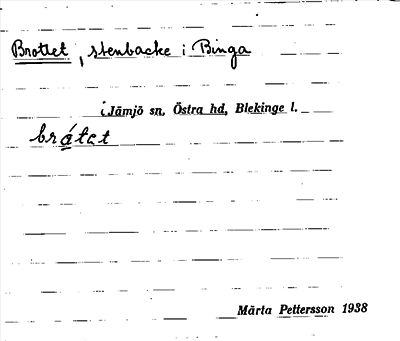 Brottet, stenbacke i Binga
i Jämjö sn, Östra hd, Blekinge l.
brátet
Märta Pettersson 1938